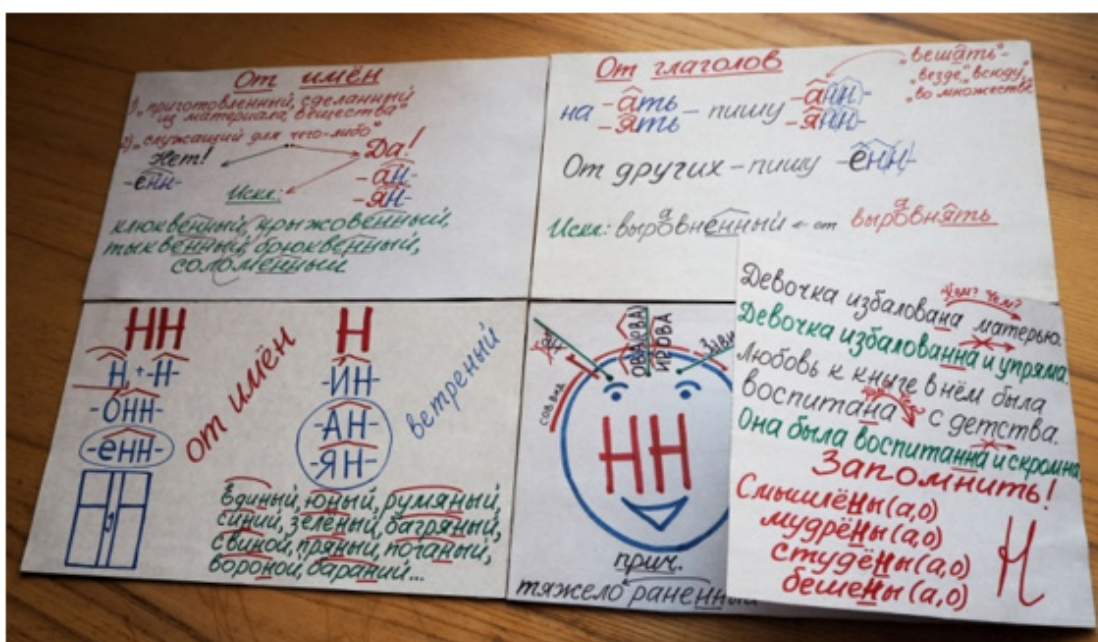 От имён
1) "приготовленный, сделанный
из материала, вещества"
2) "служащий для чего-либо"
Нет!
Да!
-енн-
-ан-
-ян-
Искл.:
клюквенный, крыжовенный,
тыквенный, брюквенный,
соломенный
От глаголов
на -ать
-ять
– пишу
-анн-
-янн-
"вешать"-
"везде", "всюду",
"во множестве"
От других – пишу -енн-
Искл: выровненный ← от выровнять
а
НН
н + -н-
-онн-
-енн-
от имён
Н
-ин-
-АН-
-ЯН-
ветреный
Единый, юный, румяный,
синий, зелёный, багряный,
свиной, пряный, поганый,
вороной, бараний...
сов.вид
ОВА(ЕВА)
ИРОВА
НН
прич.
тяжело раненный
Чем? Чем?
Девочка избалована матерью.
Девочка избалованна и упряма.
Любовь к книге в нём была
воспитана с детства.
Она была воспитанна и скромна
Запомнить!
Смышлёны (а,о)
мудрёны (а,о)
студёны (а,о)
бешены (а,о)
Н